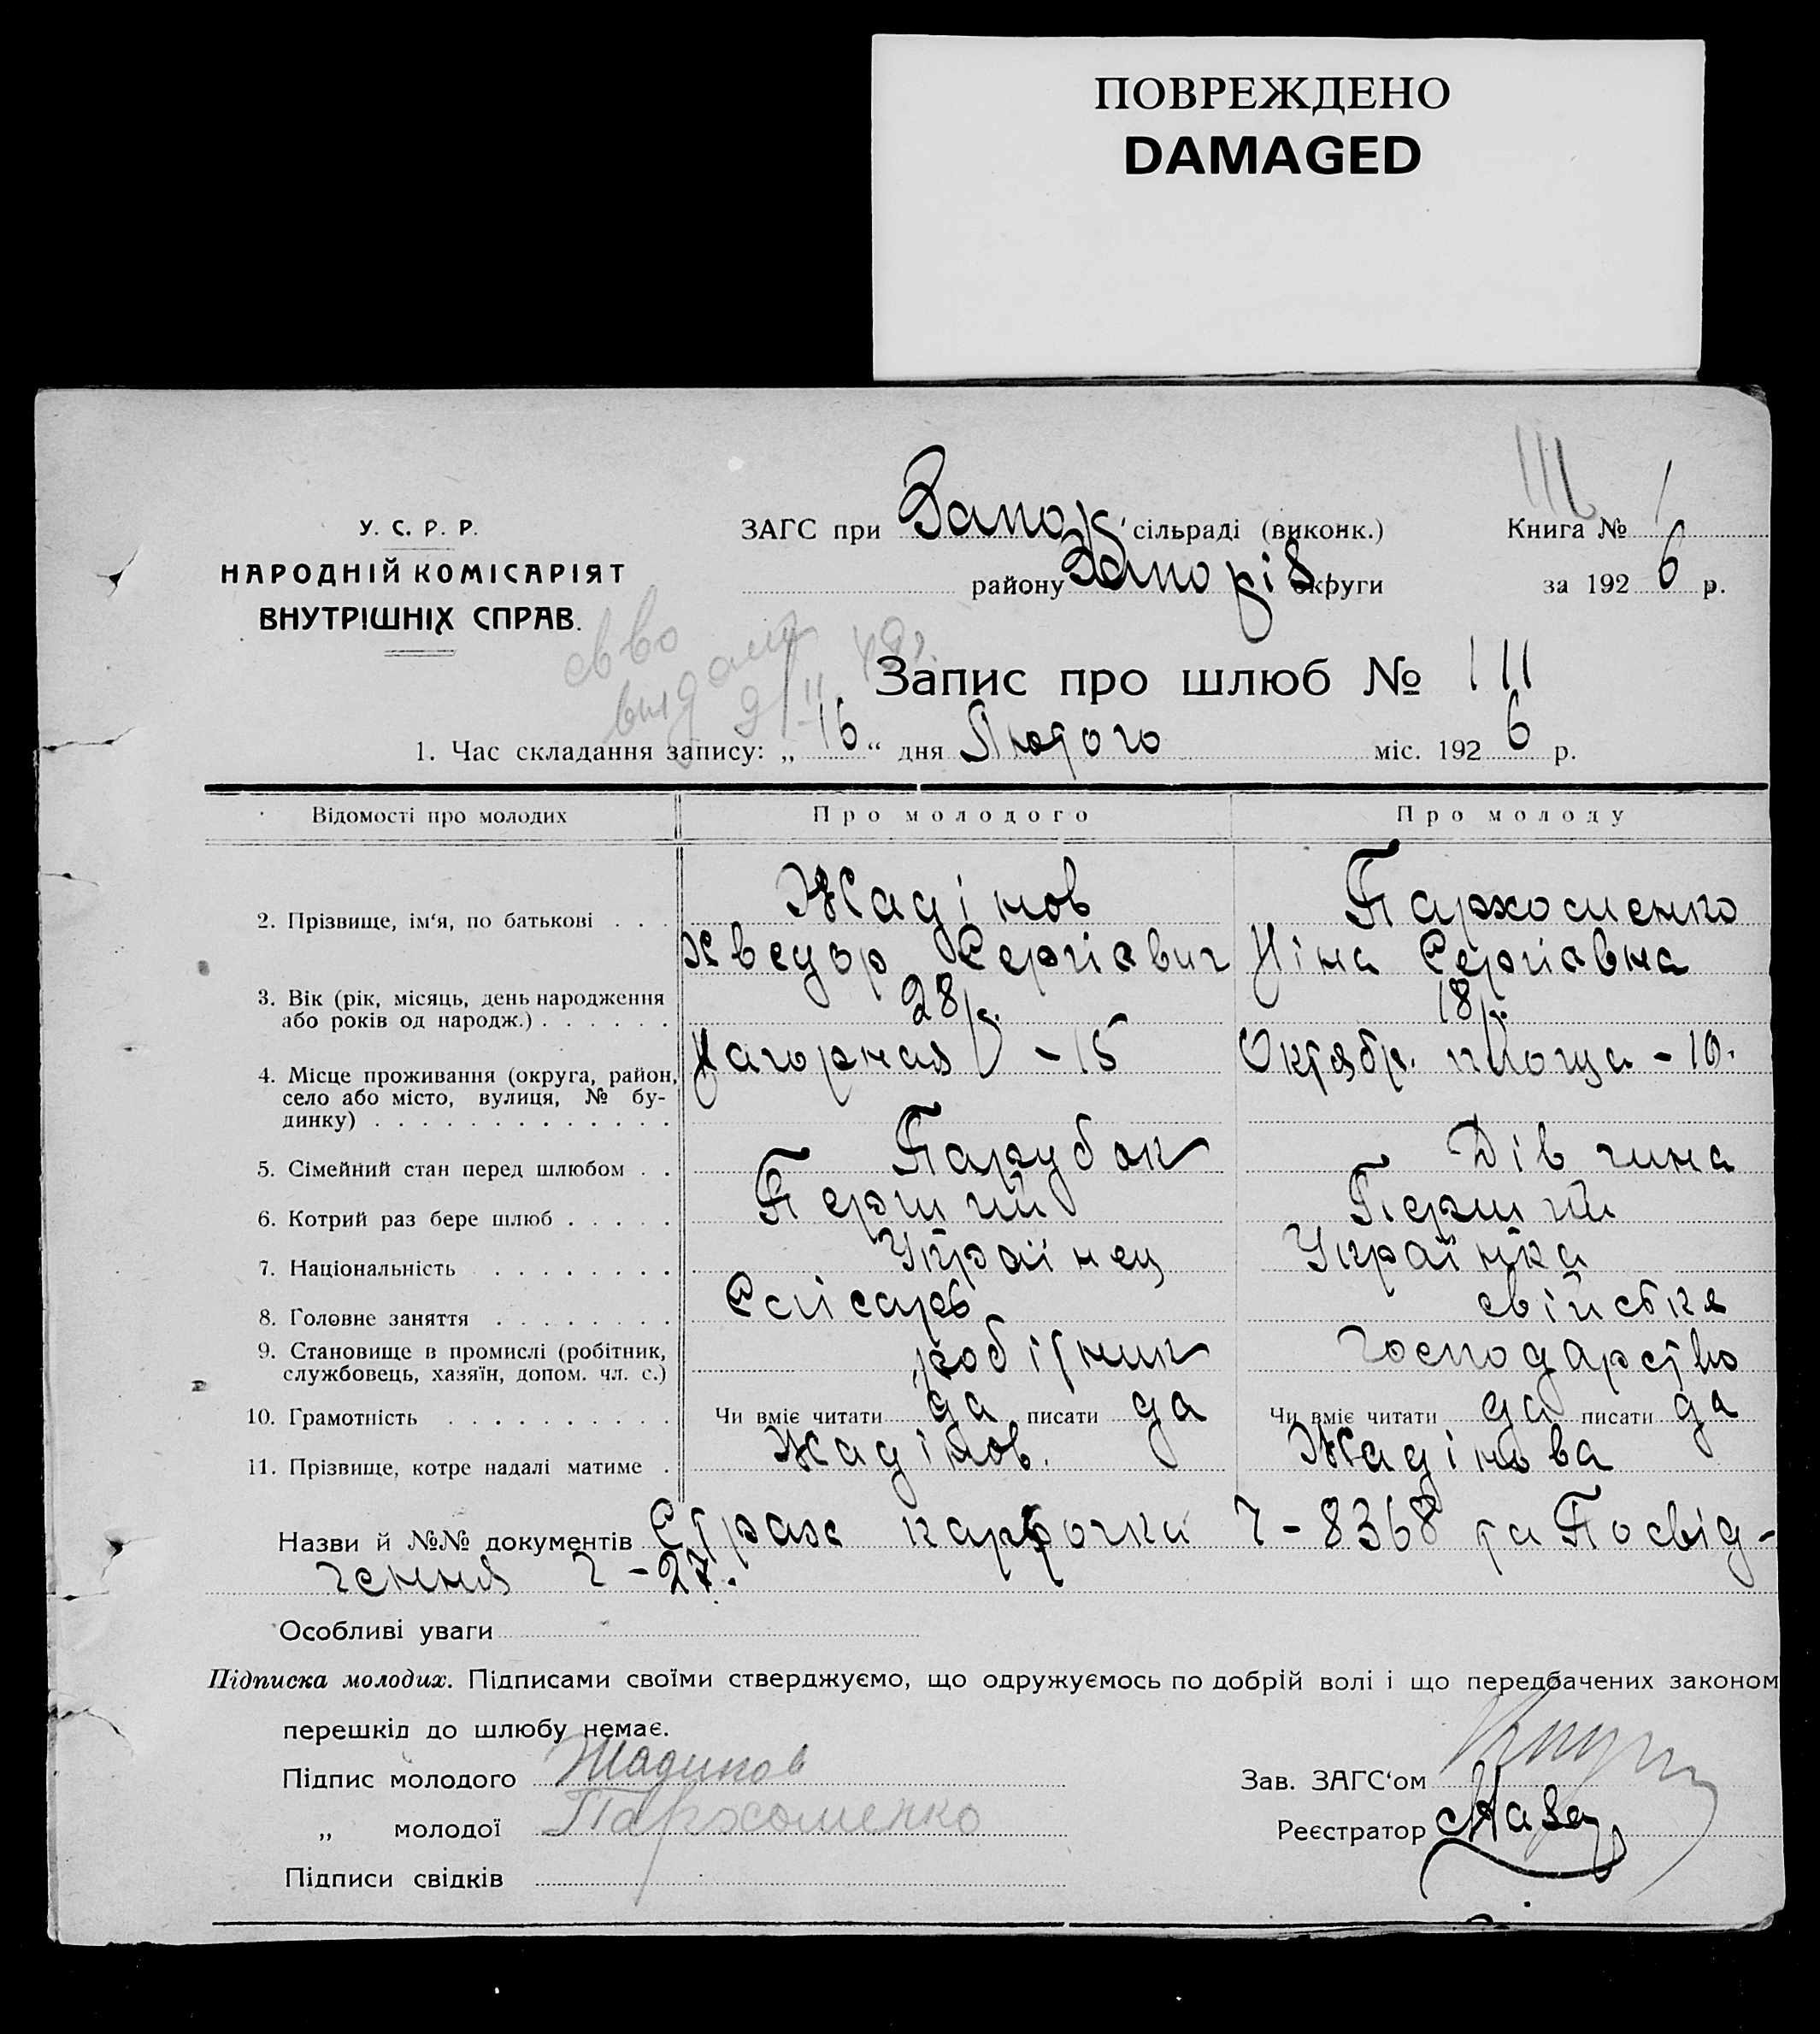 ПОВРЕЖДЕНО
DAMAGED
У. С. Р. Р.
НАРОДНІЙ КОМІСАРІЯТ
ВНУТРІШНІХ СПРАВ.
ЗАГС при Запок, сільраді (виконк.)
району Запорів округи
111
Книга № 1
за 1926 р.
св во
видано
9/II 49 г.
Запис про шлюб № 111
1. Час складання запису: „16“ дня Лютого міс. 1926 р.
Відомості про молодих Про молодого Про молоду
2. Прізвище, ім'я, по батькові . . . Жадінов Пархоменко
Хведор Сергієвич Ніна Сергієвна
3. Вік (рік, місяць, день народження 28 р. 18 р.
або років од народж.) . . . . . .
Нагорная - 15 Октябр. площа - 10.
4. Місце проживання (округа, район,
село або місто, вулиця, № бу-
динку) . . . . . . . . . . . . .
5. Сімейний стан перед шлюбом . . Парубок Дівчина
6. Котрий раз бере шлюб . . . . . Перший Перший
7. Національність . . . . . . . . Українец Українка
8. Головне заняття . . . . . . . . Слісарь свійське
9. Становище в промислі (робітник, робітник господарство
службовець, хазяїн, допом. чл. с.)
10. Грамотність . . . . . . . . . . Чи вміє читати да писати да Чи вміє читати да писати да
11. Прізвище, котре надалі матиме . Жадінов. Жадінова
Назви й №№ документів Страх карточка Ч-8368 та Посвід-
чення Ч-27.
Особливі уваги
Підписка молодих. Підписами своїми стверджуємо, що одружуємось по добрій волі і що передбачених законом
перешкід до шлюбу немає.
Підпис молодого Жадинов
Зав. ЗАГС'ом
„ молодої Пархоменко
Реєстратор
Підписи свідків